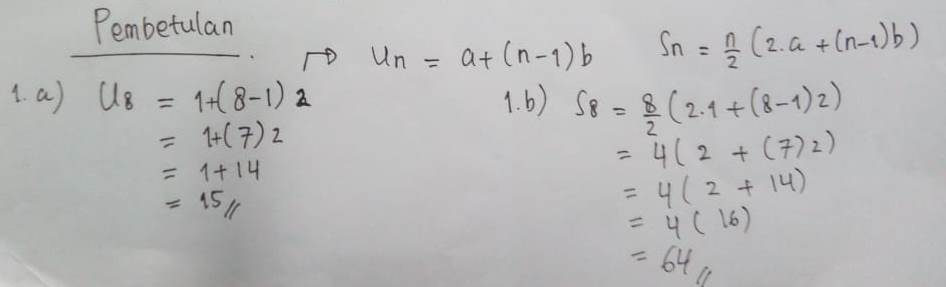 Pembetulan
Un = a+(n-1)b
Sn = n/2 (2.a + (n-1)b)
1.a) U8 = 1+(8-1) 2
= 1+(7)2
= 1+14
= 15//
1.b) S8 = 8/2 (2.1 + (8-1)2)
= 4( 2 + (7)2)
= 4( 2 + 14)
= 4( 16)
= 64//